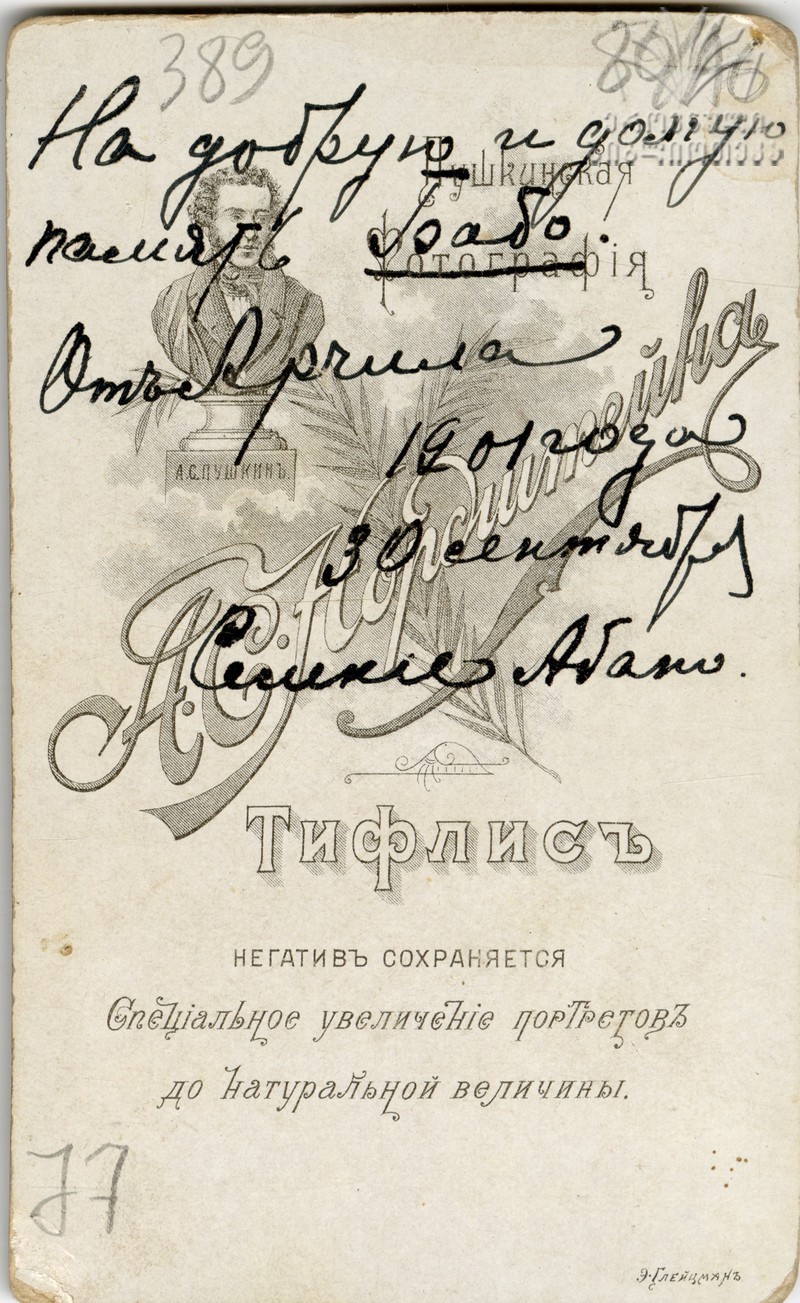 389
На добрую и долгую
Пушкинская
память Бабо.
Фотографія
Отъ Арчила
1901 года
А.С.ПУШКИНЪ.
30 сентября
А.С. Нордштейна
Абано.
Тифлисъ
НЕГАТИВЪ СОХРАНЯЕТСЯ
Спеціальное увеличеніе портретовъ
до натуральной величины.
77
Э. Глейцманъ